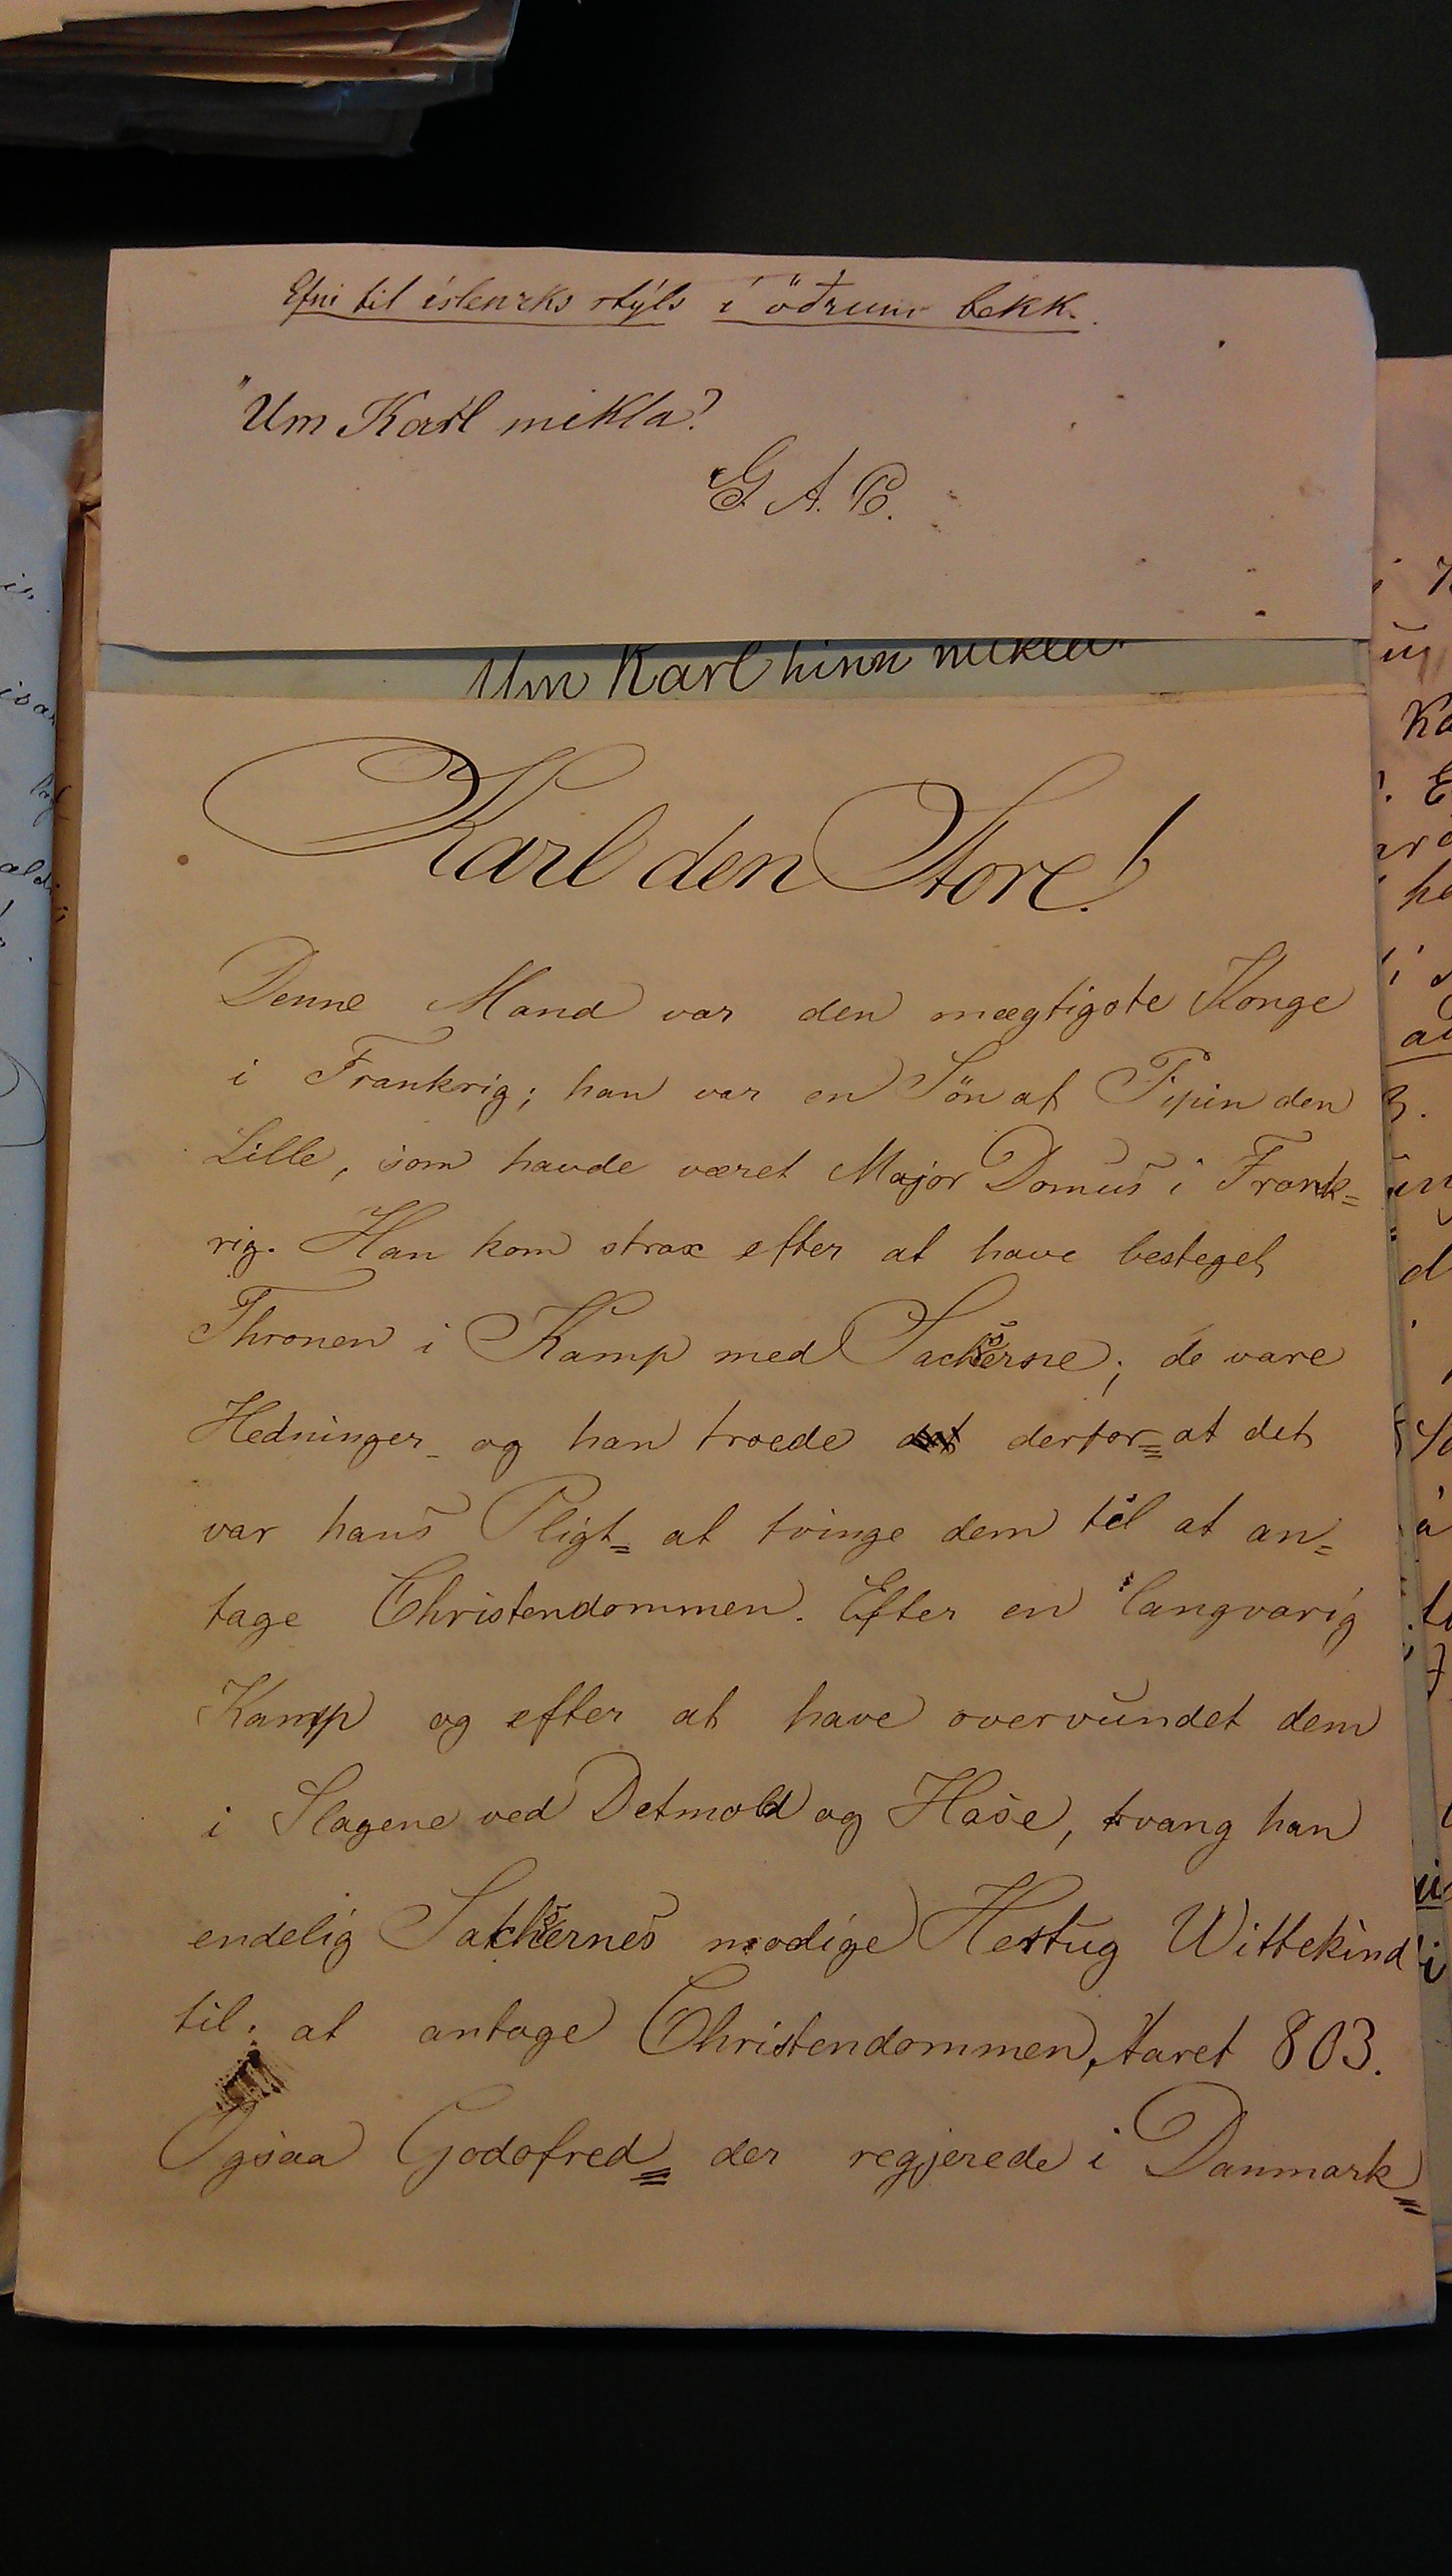 Efni til íslenzks stýls í öðrum bekk.
"Um Karl mikla?
G. A. P.
Um Karl hinn mikla.
Karl den Store!
Denne Mand var den mægtigste Konge
i Frankrig; han var en Sön af Pipin den
Lille, som havde været Major Domus i Frank=
rig. Han kom strax efter at have besteget
Thronen i Kamp med Sachserne; de vare
Hedninger og han troede derfor= at det
var hans Pligt= at tvinge dem til at an=
tage Christendommen. Efter en langvarig
Kamp og efter at have overvundet dem
i Slagene ved Detmold og Hase, tvang han
endelig Sachsernes modige Hertug Wittekind
til at antage Christendommen, Aaret 803.
Ogsaa Godofred= der regjerede i Danmark=